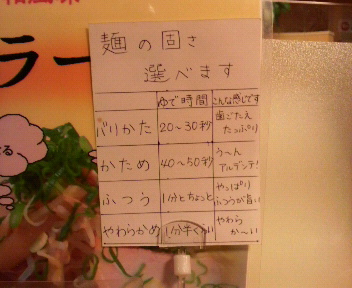 麺の固さ
選べます
ゆで時間 こんな感じです
バリかた 20〜30秒 歯ごたえ
たっぷり
かため 40〜50秒 う〜ん
アルデンテ!
ふつう 1分とちょっと やっぱり
ふつうが旨い
やわらかめ 1分半くらい やわら
か〜い
ラー